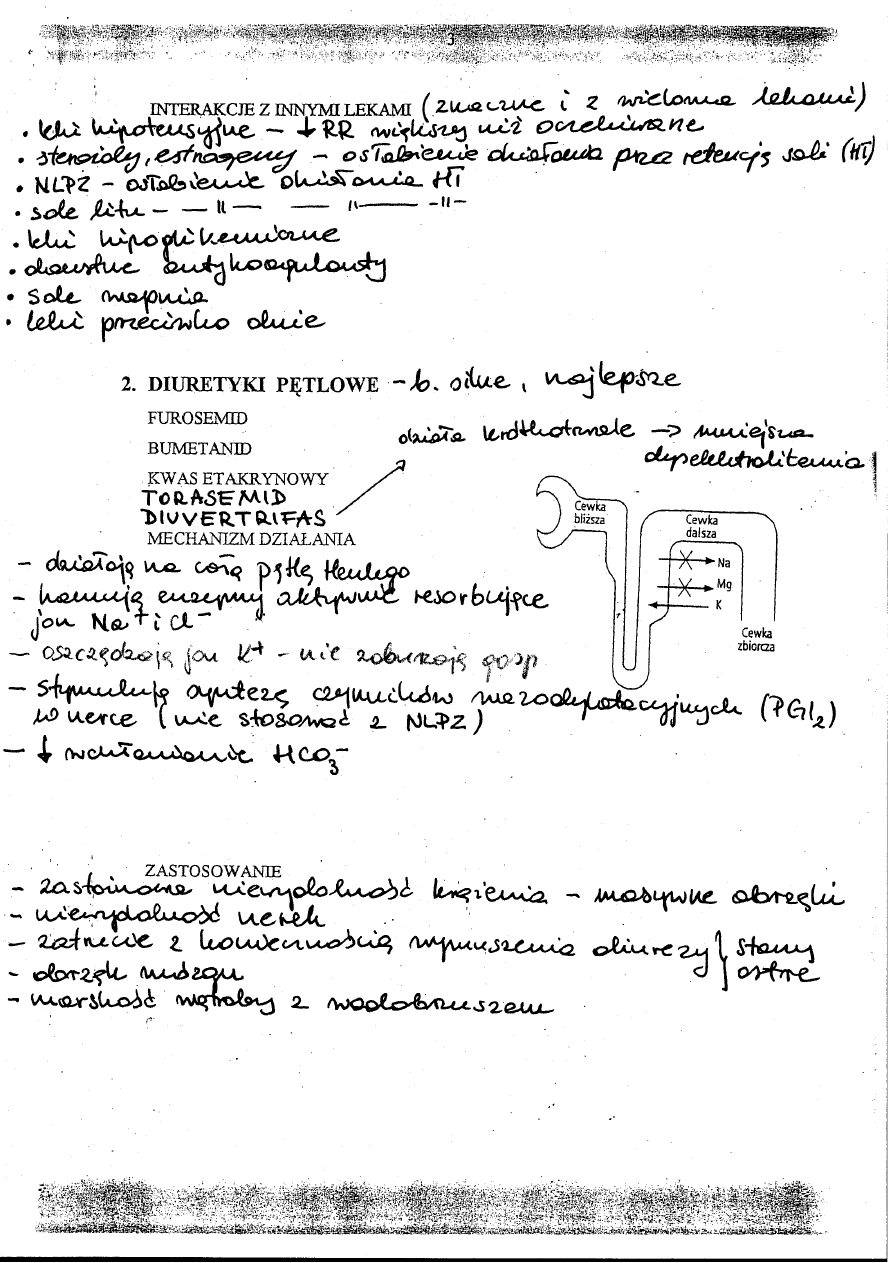 3
INTERAKCJE Z INNYMI LEKAMI (znaczne i z wieloma lekami)
• leki hipotensyjne - ↓ RR większy niż oczekiwane
• steroidy, estrogeny - osłabienie działania przez retencję soli (HT)
• NLPZ - osłabienie działania HT
• sole litu - — || — — || — - || -
• leki hipoglikemiczne
• doustne antykoagulanty
• sole wapnia
• leki przeciwko dnie
2. DIURETYKI PĘTLOWE - b. silne, najlepsze
FUROSEMID
działa krótkotrwale → mniejsza
BUMETANID
dyselektrolitemia
KWAS ETAKRYNOWY
TORASEMID
DIUVERTRIFAS
MECHANIZM DZIAŁANIA
Cewka bliższa
Cewka dalsza
Na
Mg
K
Cewka zbiorcza
- działają na całą pętlę Henlego
- hamują enzymy aktywnie resorbujące
jon Na+ i Cl-
- oszczędzają jon K+ - nie zaburzają gosp
- stymulują syntezę czynników wazodylatacyjnych (PGI2)
w nerce (nie stosować z NLPZ)
- ↓ wchłanianie HCO3-
ZASTOSOWANIE
- zastoinowa niewydolność krążenia - masywne obrzęki
- niewydolność nerek
- zatrucie z koniecznością wymuszenia diurezy } stany
- obrzęk mózgu ostre
- marskość wątroby z wodobrzuszem